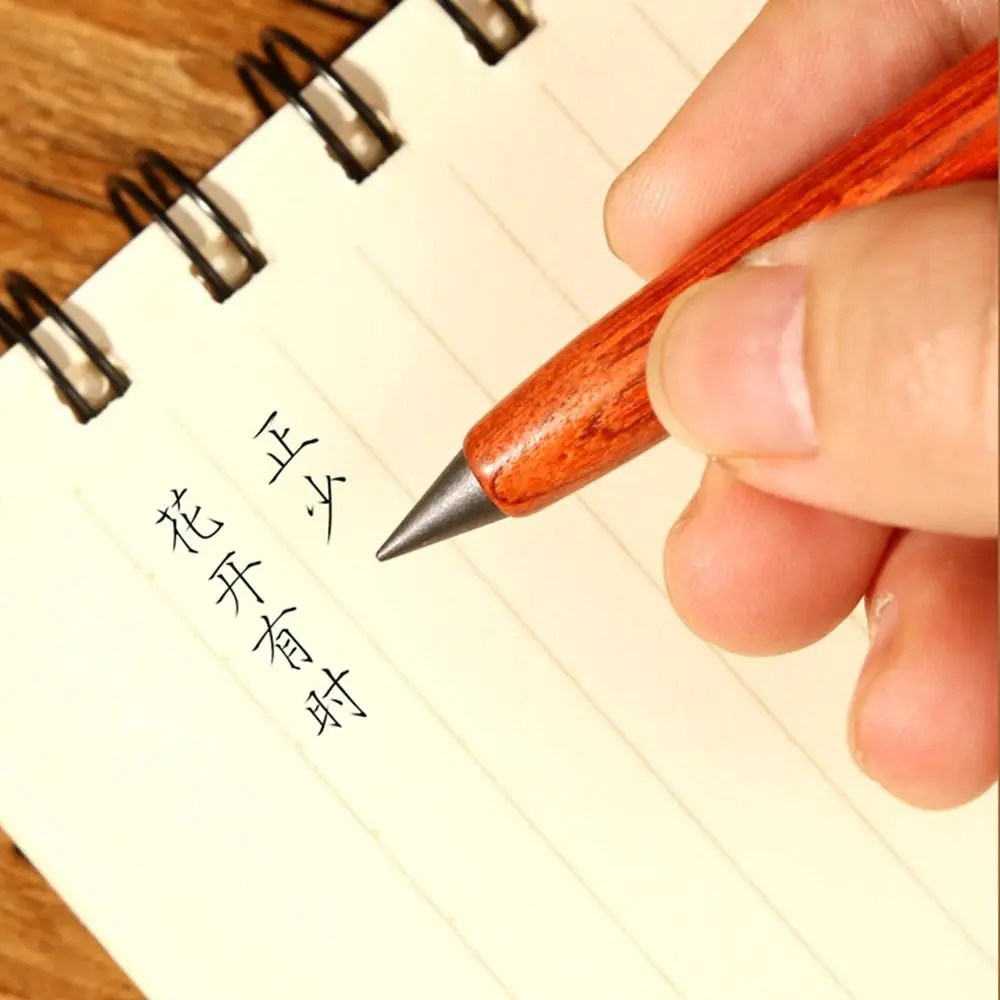 花开有时
正少